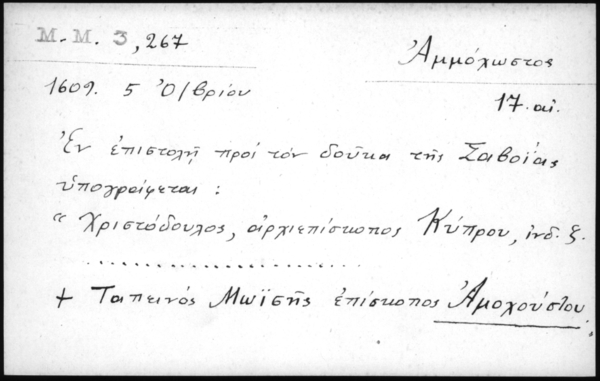 M. M. 3, 267
Ἀμμόχωστος
1609. 5 Ὀ/βρίου
17. αἰ.
Ἐν ἐπιστολῇ πρὸς τὸν δοῦκα τῆς Σαβοΐας
ὑπογράφεται :
“ Χριστόδουλος, ἀρχιεπίσκοπος Κύπρου, ἰνδ. ξ.
....................
+ Ταπεινός Μωϊσῆς ἐπίσκοπος Ἀμοχούστου.